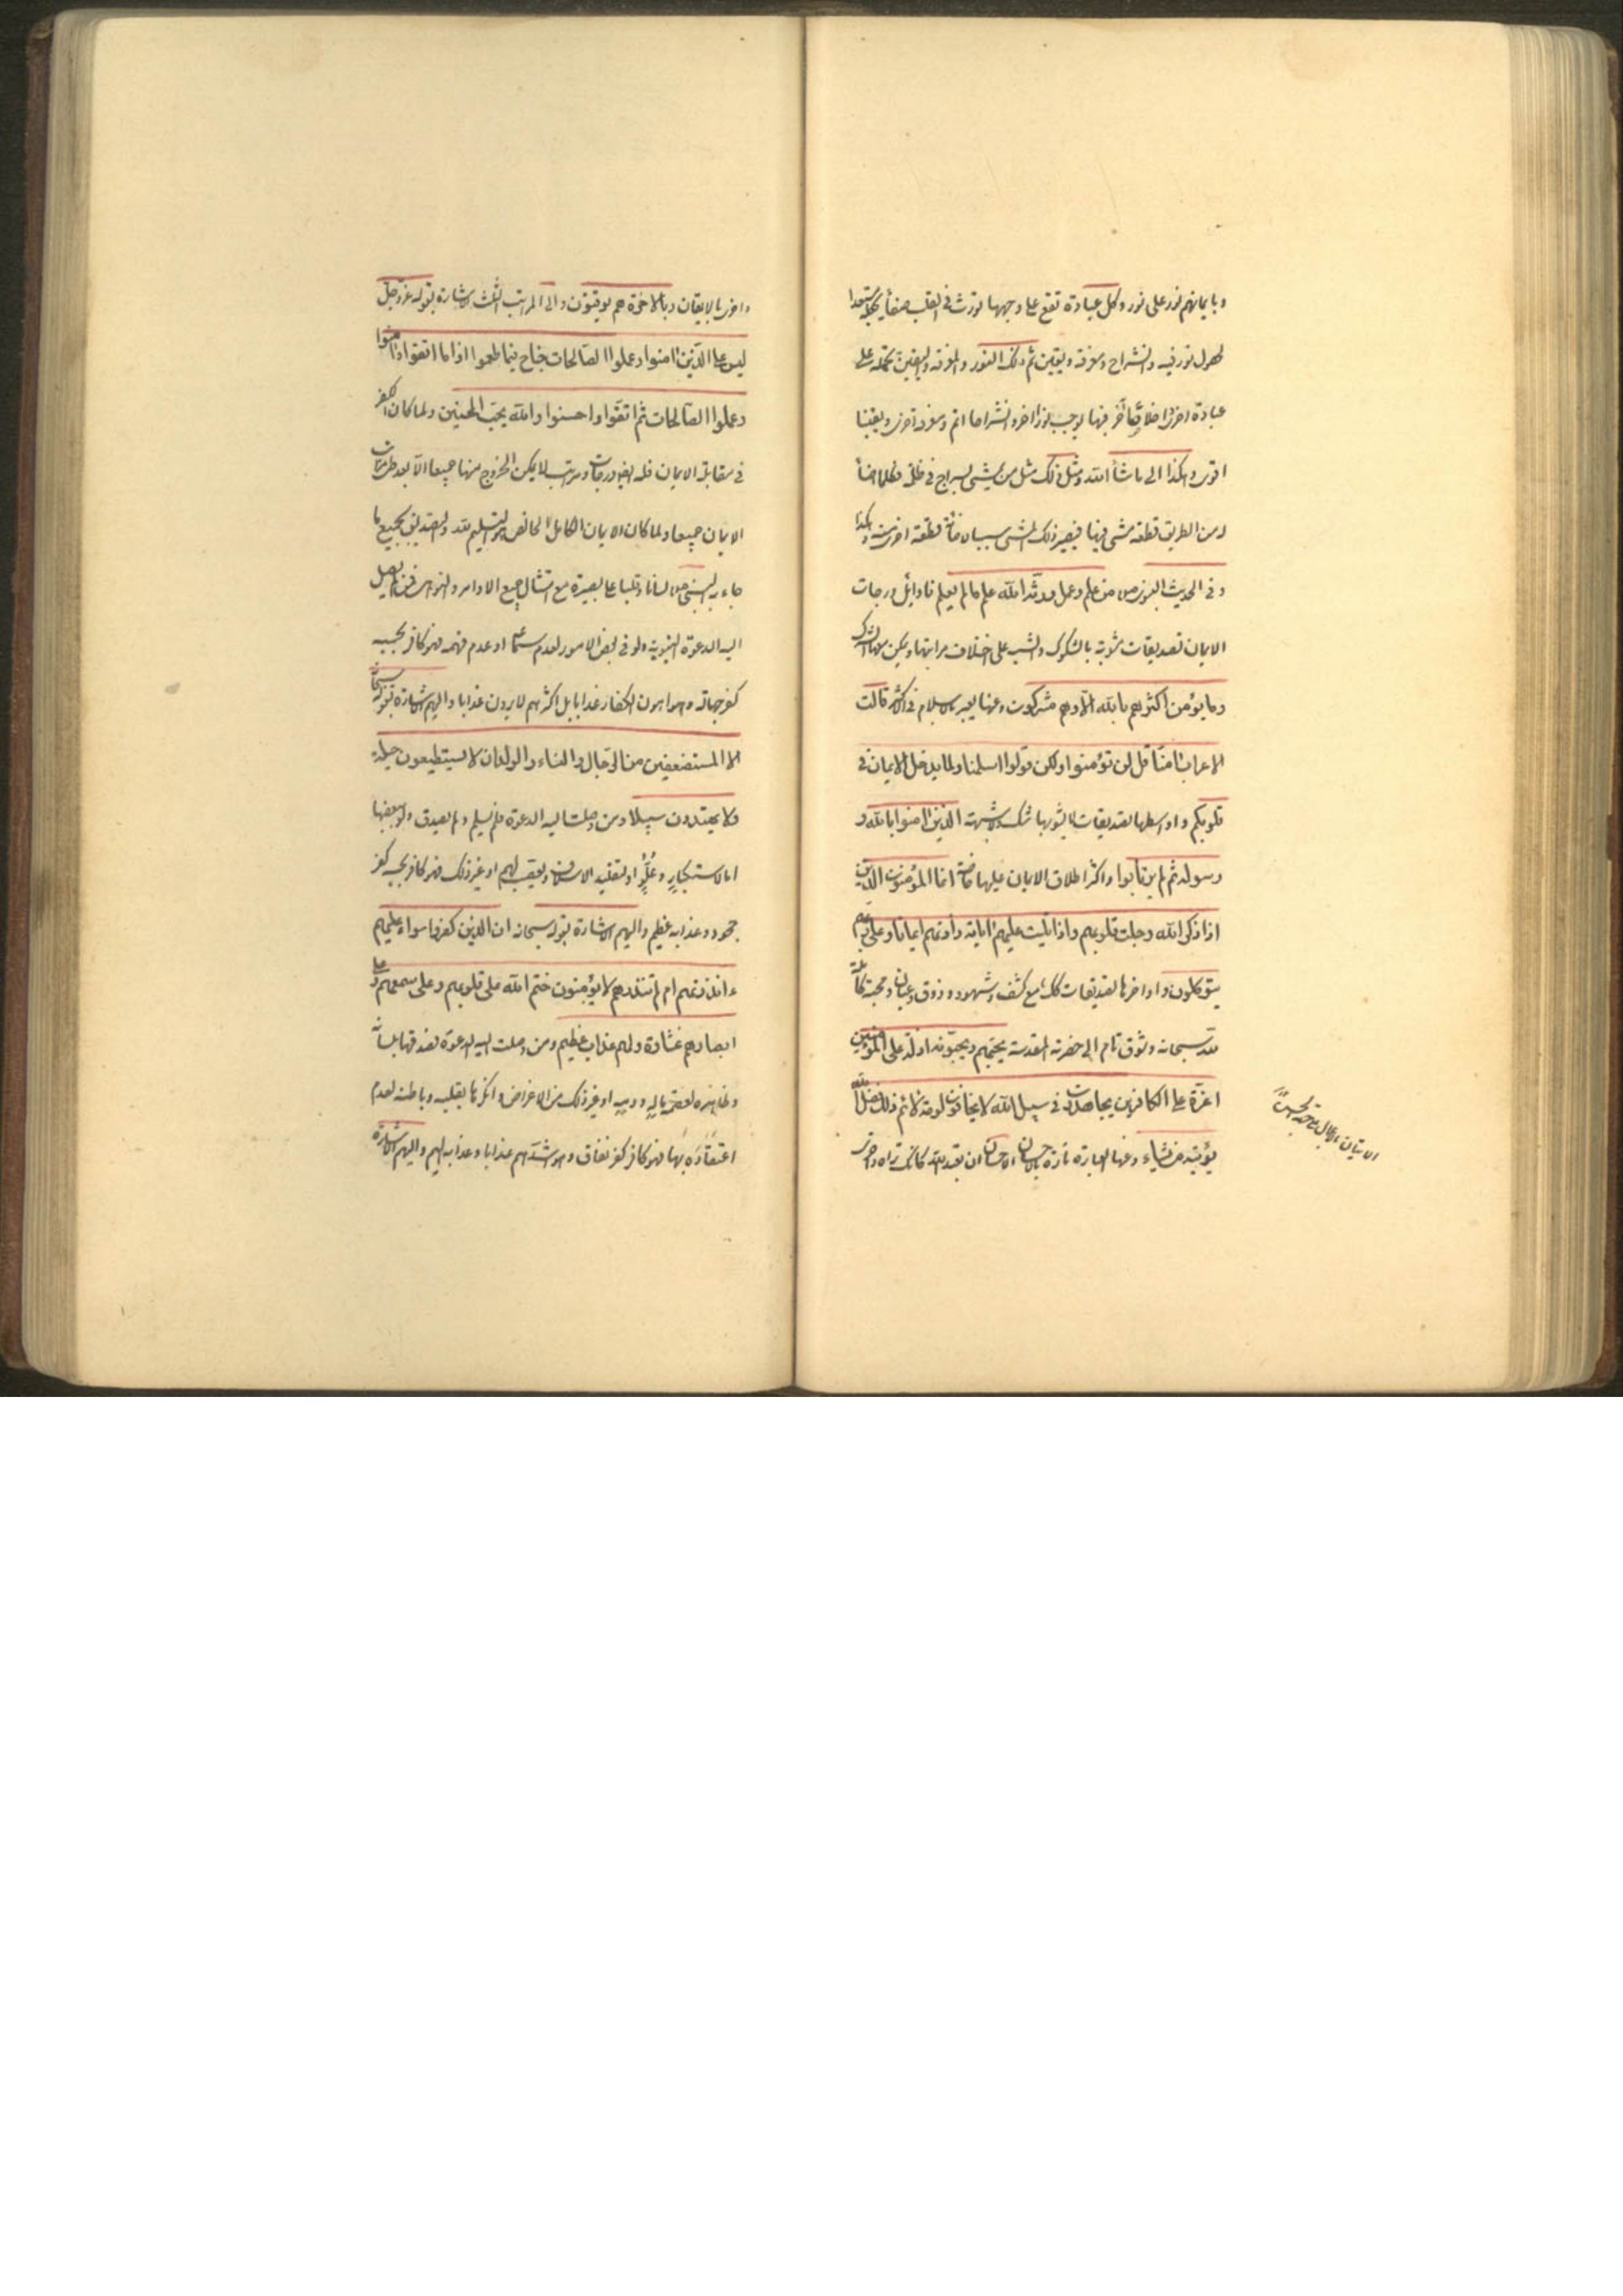 وبايمانهم نور على نور وكل عبادة تقع على وجهها تورث في القلب صفأ يجعله مستعدا
لحصول نور فيه وانشراح ومعرفة ويقين ثم ذلك النور والمعرفة واليقين تحمله على
عبادة اخرى واخلاص آخر فيها يوجب نورا اخر وانشراحا اتم ومعرفة اخرى ويقينا
اقوى وهكذا الى ما شأ الله ومثل ذلك مثل من يمشي بسراج في ظلمة فكلما اضأ
له من الطريق قطعة مشى فيها فيصير ذلك المشى سببا لاضائة قطعة اخرى منه وهكذا
وفي الحديث النبوى ص من علم وعمل ورثه الله علم مالم يعلم فاوائل درجات
الايمان تصديقات مشوبة بالشكوك والشبه على اختلاف مراتبها ويمكن معها الشرك
وما يؤمن اكثرهم بالله الا وهم مشركون وعنها يعبر بالاسلام في الاكثر قالت
الاعراب امنا قل لن تؤمنوا ولكن قولوا اسلمنا ولما يدخل الايمان في
قلوبكم واواسطها تصديقات لا يشوبها شك ولا شبهة الذين امنوا بالله و
رسوله ثم لم يرتابوا واكثر اطلاق الايمان عليها خاصة انما المؤمنون الذين
اذا ذكر الله وجلت قلوبهم واذا تليت عليهم اياته زادتهم ايمانا وعلى ربهم
يتوكلون واواخرها تصديقات كك مع كشف وشهود وذوق وعيان ومحبة كاملة
لله سبحانه وشوق تام الى حضرته المقدسة يحبهم ويحبونه اذلة على المؤمنين
اعزة على الكافرين يجاهدون في سبيل الله لا يخافون لومة لائم ذلك فضل الله
يؤتيه من يشاء وعنها العبارة تارة بالاحسان الاحسان ان تعبد الله كانك تراه
واخرى بالايقان وبالاخرة هم يوقنون والى المراتب الثلث الاشارة بقوله عز وجل
ليس على الذين امنوا وعملوا الصالحات جناح فيما طعموا اذا ما اتقوا وامنوا
وعملوا الصالحات ثم اتقوا واحسنوا والله يحب المحسنين ولما كان الكفر
في مقابلة الايمان فله ايضا درجات ومراتب لا يمكن الخروج منها جميعا الا بعد
الايمان جميعا ولما كان الايمان الكامل الخالص هو التسليم لله والتصديق بجميع ما
جاء به النبي ص لسانا وقلبا على بصيرة مع امتثال جميع الاوامر والنواهي فمن لم يصل
اليه الدعوة النبوية ولو في بعض الامور لعدم سماعه او عدم فهمه فهو كافر بحسبه
كفر جهالة وهو اهون الكفار عذابا بل اكثرهم لا يرون عذابا واليهم الاشارة بقوله سبحانه
الا المستضعفين من الرجال والنساء والولدان لا يستطيعون حيلة
ولا يهتدون سبيلا ومن وصلت اليه الدعوة فلم يسلم ولم يصدق ولو ببعضها
اما لاستكبار وعلو او لتقليد الاسلاف وتعصب لهم او غير ذلك فهو كافر بحسبه كفر
جحود وعذابه عظيم واليهم الاشارة بقوله سبحانه ان الذين كفروا سواء عليهم
ءانذرتهم ام لم تنذرهم لا يؤمنون ختم الله على قلوبهم وعلى سمعهم وعلى
ابصارهم غشاوة ولهم عذاب عظيم ومن وصلت اليه الدعوة فصدقها بلسانه
وظاهره لعصمة ماله ودمه او غير ذلك من الاغراض وانكرها بقلبه وباطنه لعدم
اعتقاده بها فهو كافر كفر نفاق وهو اشدهم عذابا وعذابه اليم واليهم الاشارة